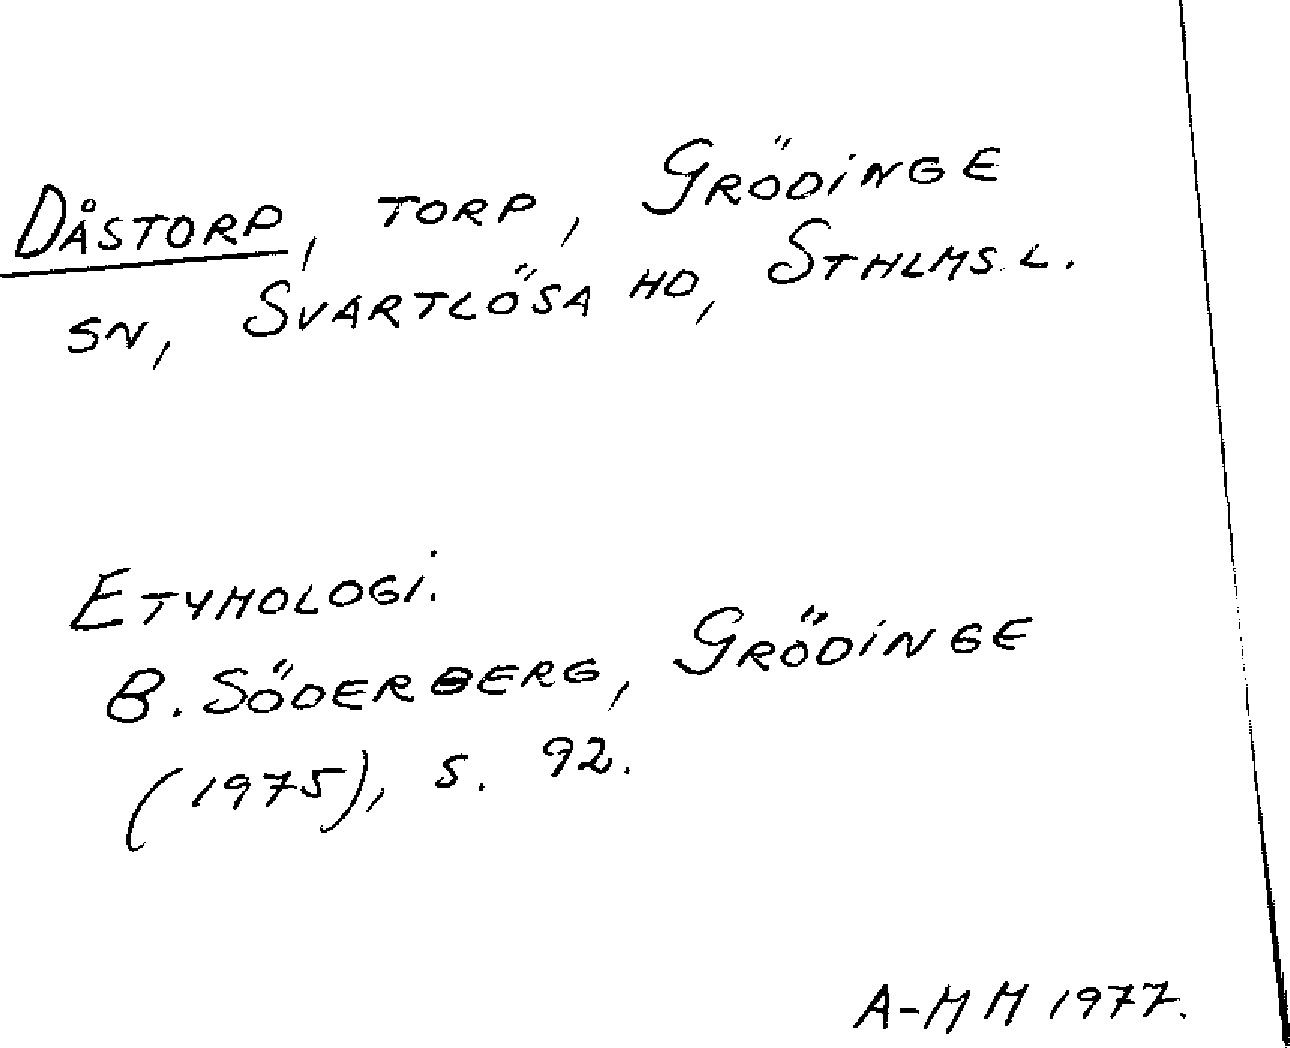 DÅSTORP, TORP, GRÖDINGE
SN, SVARTLÖSA HD, STHLMS L.
ETYMOLOGI.
B. SÖDERBERG, GRÖDINGE
(1975), S. 92.
A-MM 1977.